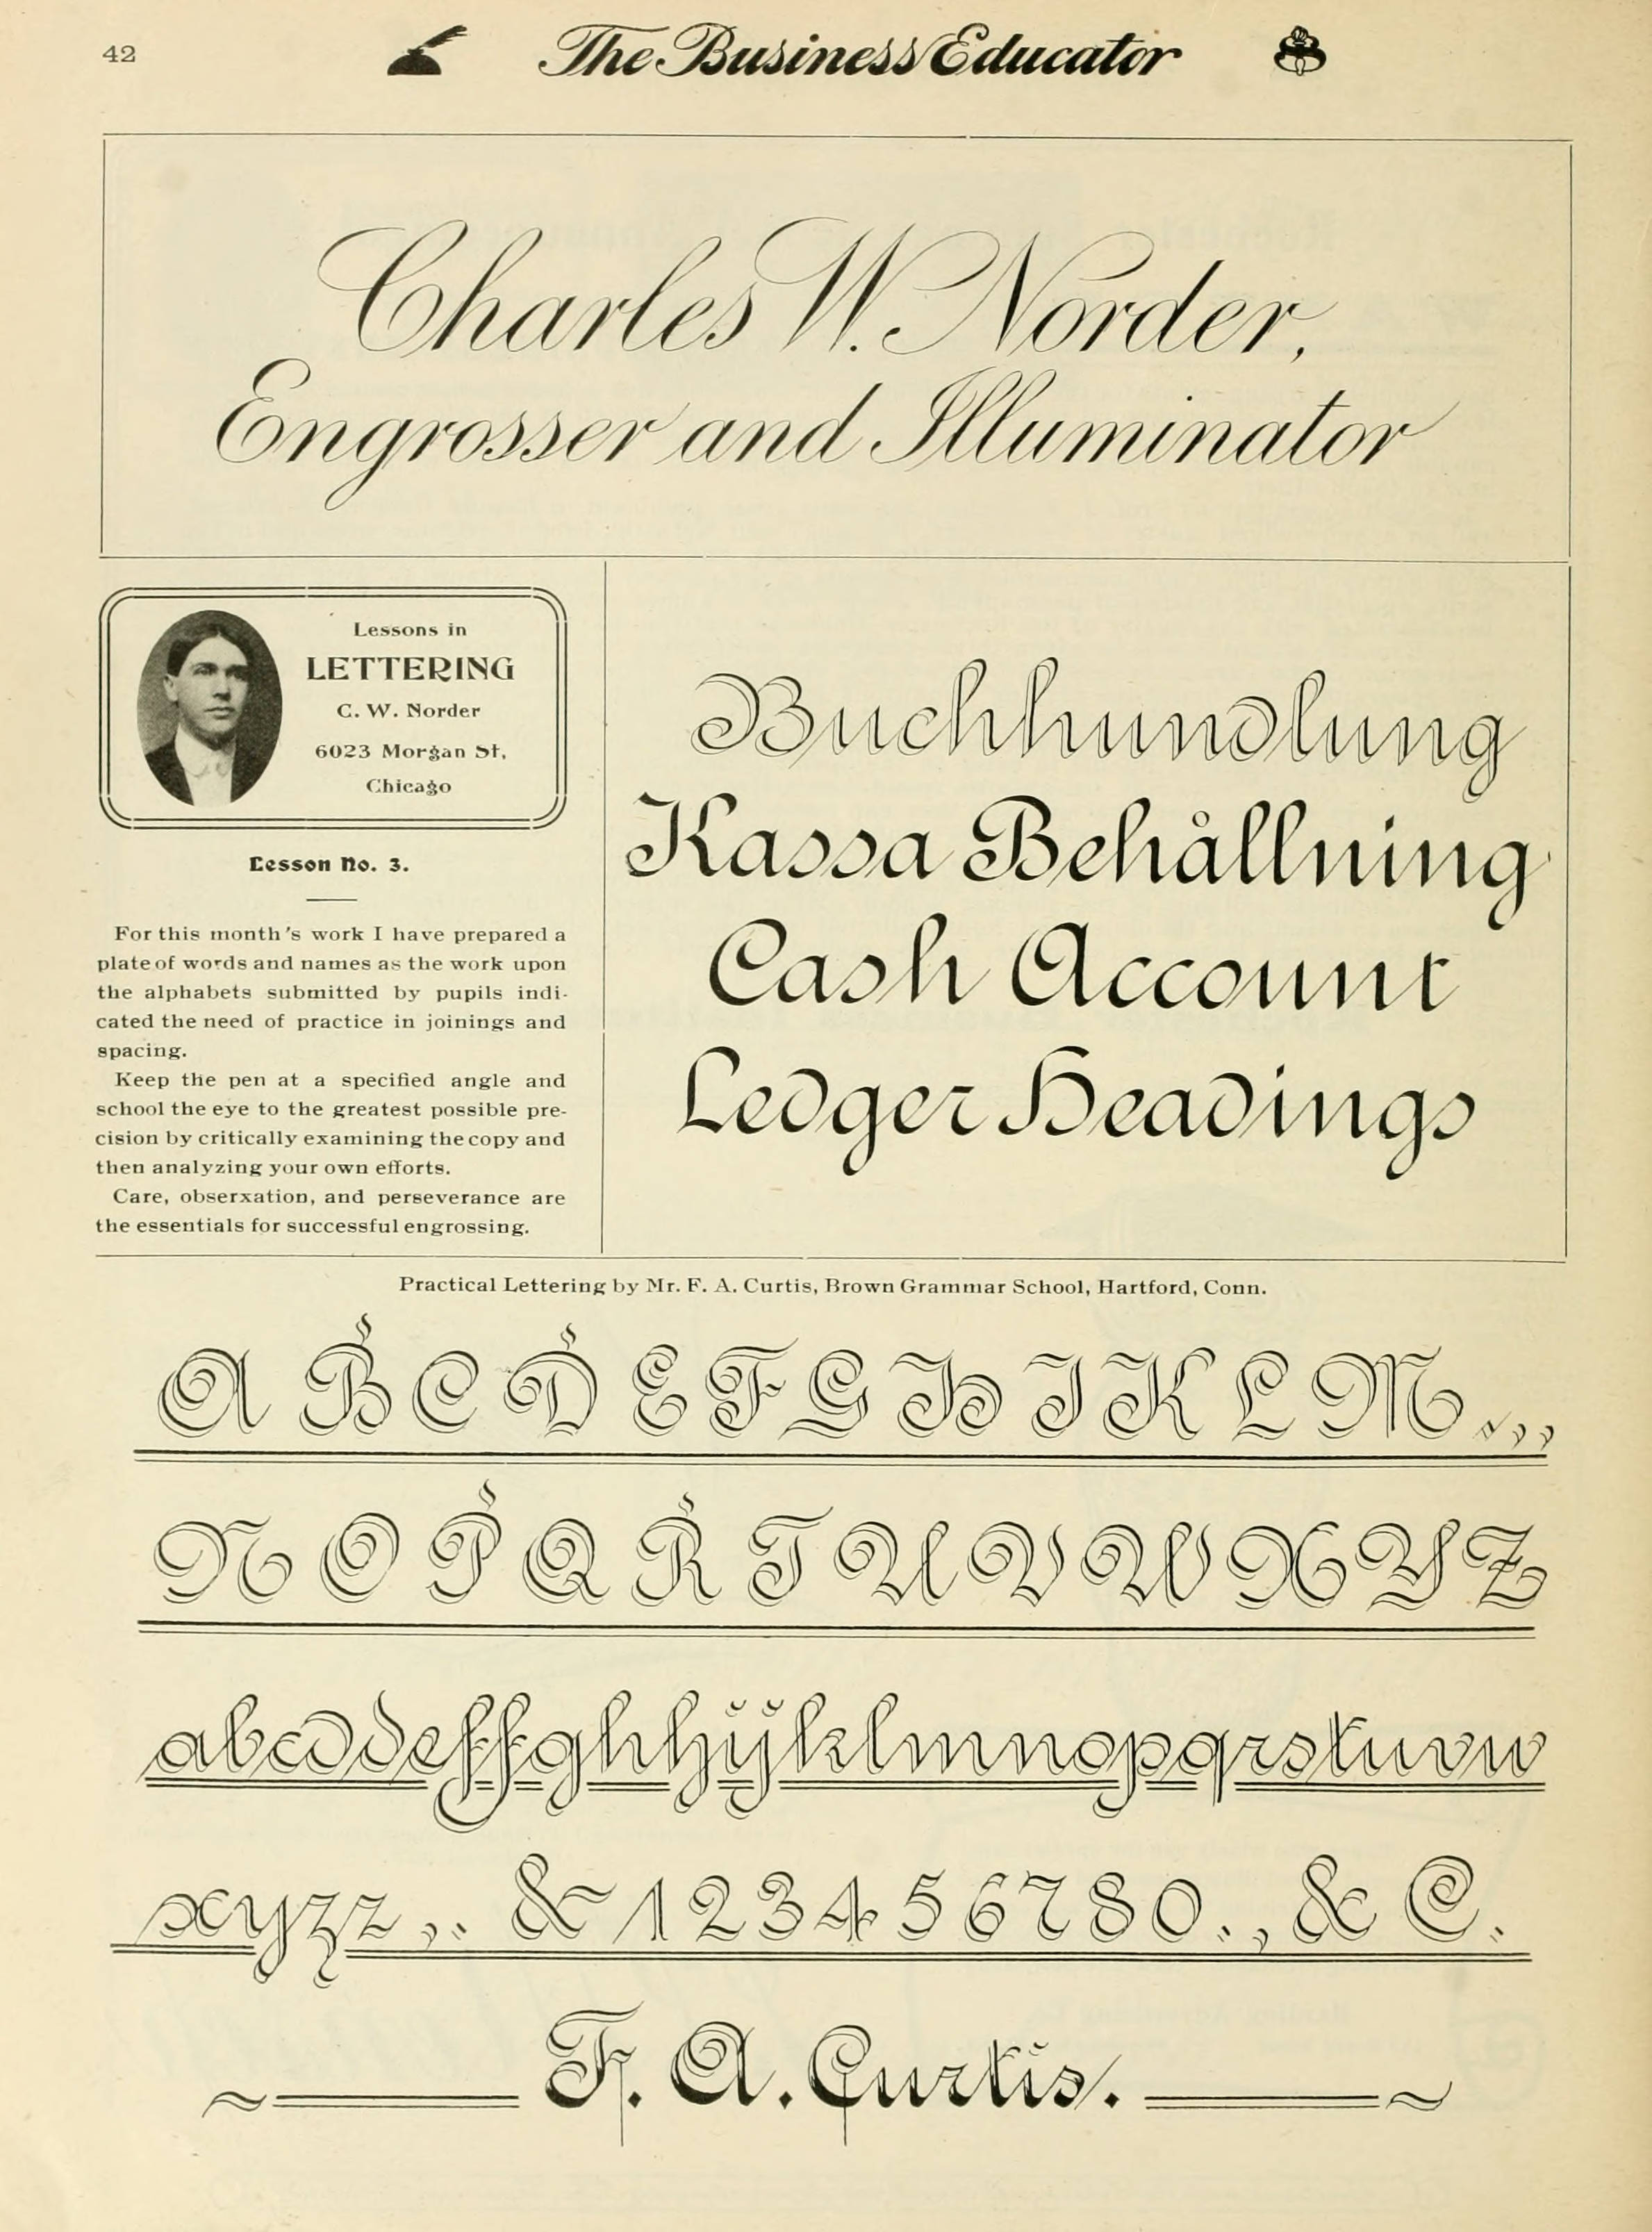 42
The Business Educator
Charles W. Norder,
Engrosser and Illuminator
Lessons in
LETTERING
C. W. Norder
6023 Morgan St,
Chicago
Lesson No. 3.
For this month's work I have prepared a
plate of words and names as the work upon
the alphabets submitted by pupils indi-
cated the need of practice in joinings and
spacing.
Keep the pen at a specified angle and
school the eye to the greatest possible pre-
cision by critically examining the copy and
then analyzing your own efforts.
Care, obserxation, and perseverance are
the essentials for successful engrossing.
Buchhundlung
Kassa Behållning
Cash Account
Ledger Headings
Practical Lettering by Mr. F. A. Curtis, Brown Grammar School, Hartford, Conn.
A B C D E F G H I K L M . , ,
N O P Q R T U V W X Y Z
abcddeffghhijklmnopqrstuvw
xyzz ,. & 1 2 3 4 5 6 7 8 0 . , & C.
F. A. Curtis.